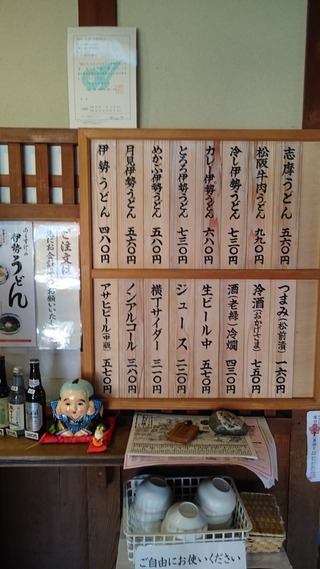 志摩うどん 五六〇円
松阪牛肉うどん 九九〇円
冷し伊勢うどん 七三〇円
カレー伊勢うどん 六八〇円
とろろ伊勢うどん 七三〇円
めかぶ伊勢うどん 五六〇円
月見伊勢うどん 五六〇円
伊勢うどん 四八〇円
つまみ(松前漬) 一六〇円
冷酒(おかげさま) 七五〇円
酒(老緑)冷燗 四三〇円
生ビール中 五七〇円
ジュース 二二〇円
横丁サイダー 三一〇円
ノンアルコール 三八〇円
アサヒビール(中瓶) 五七〇円
ご注文は
伊勢うどん
ご自由にお使いください